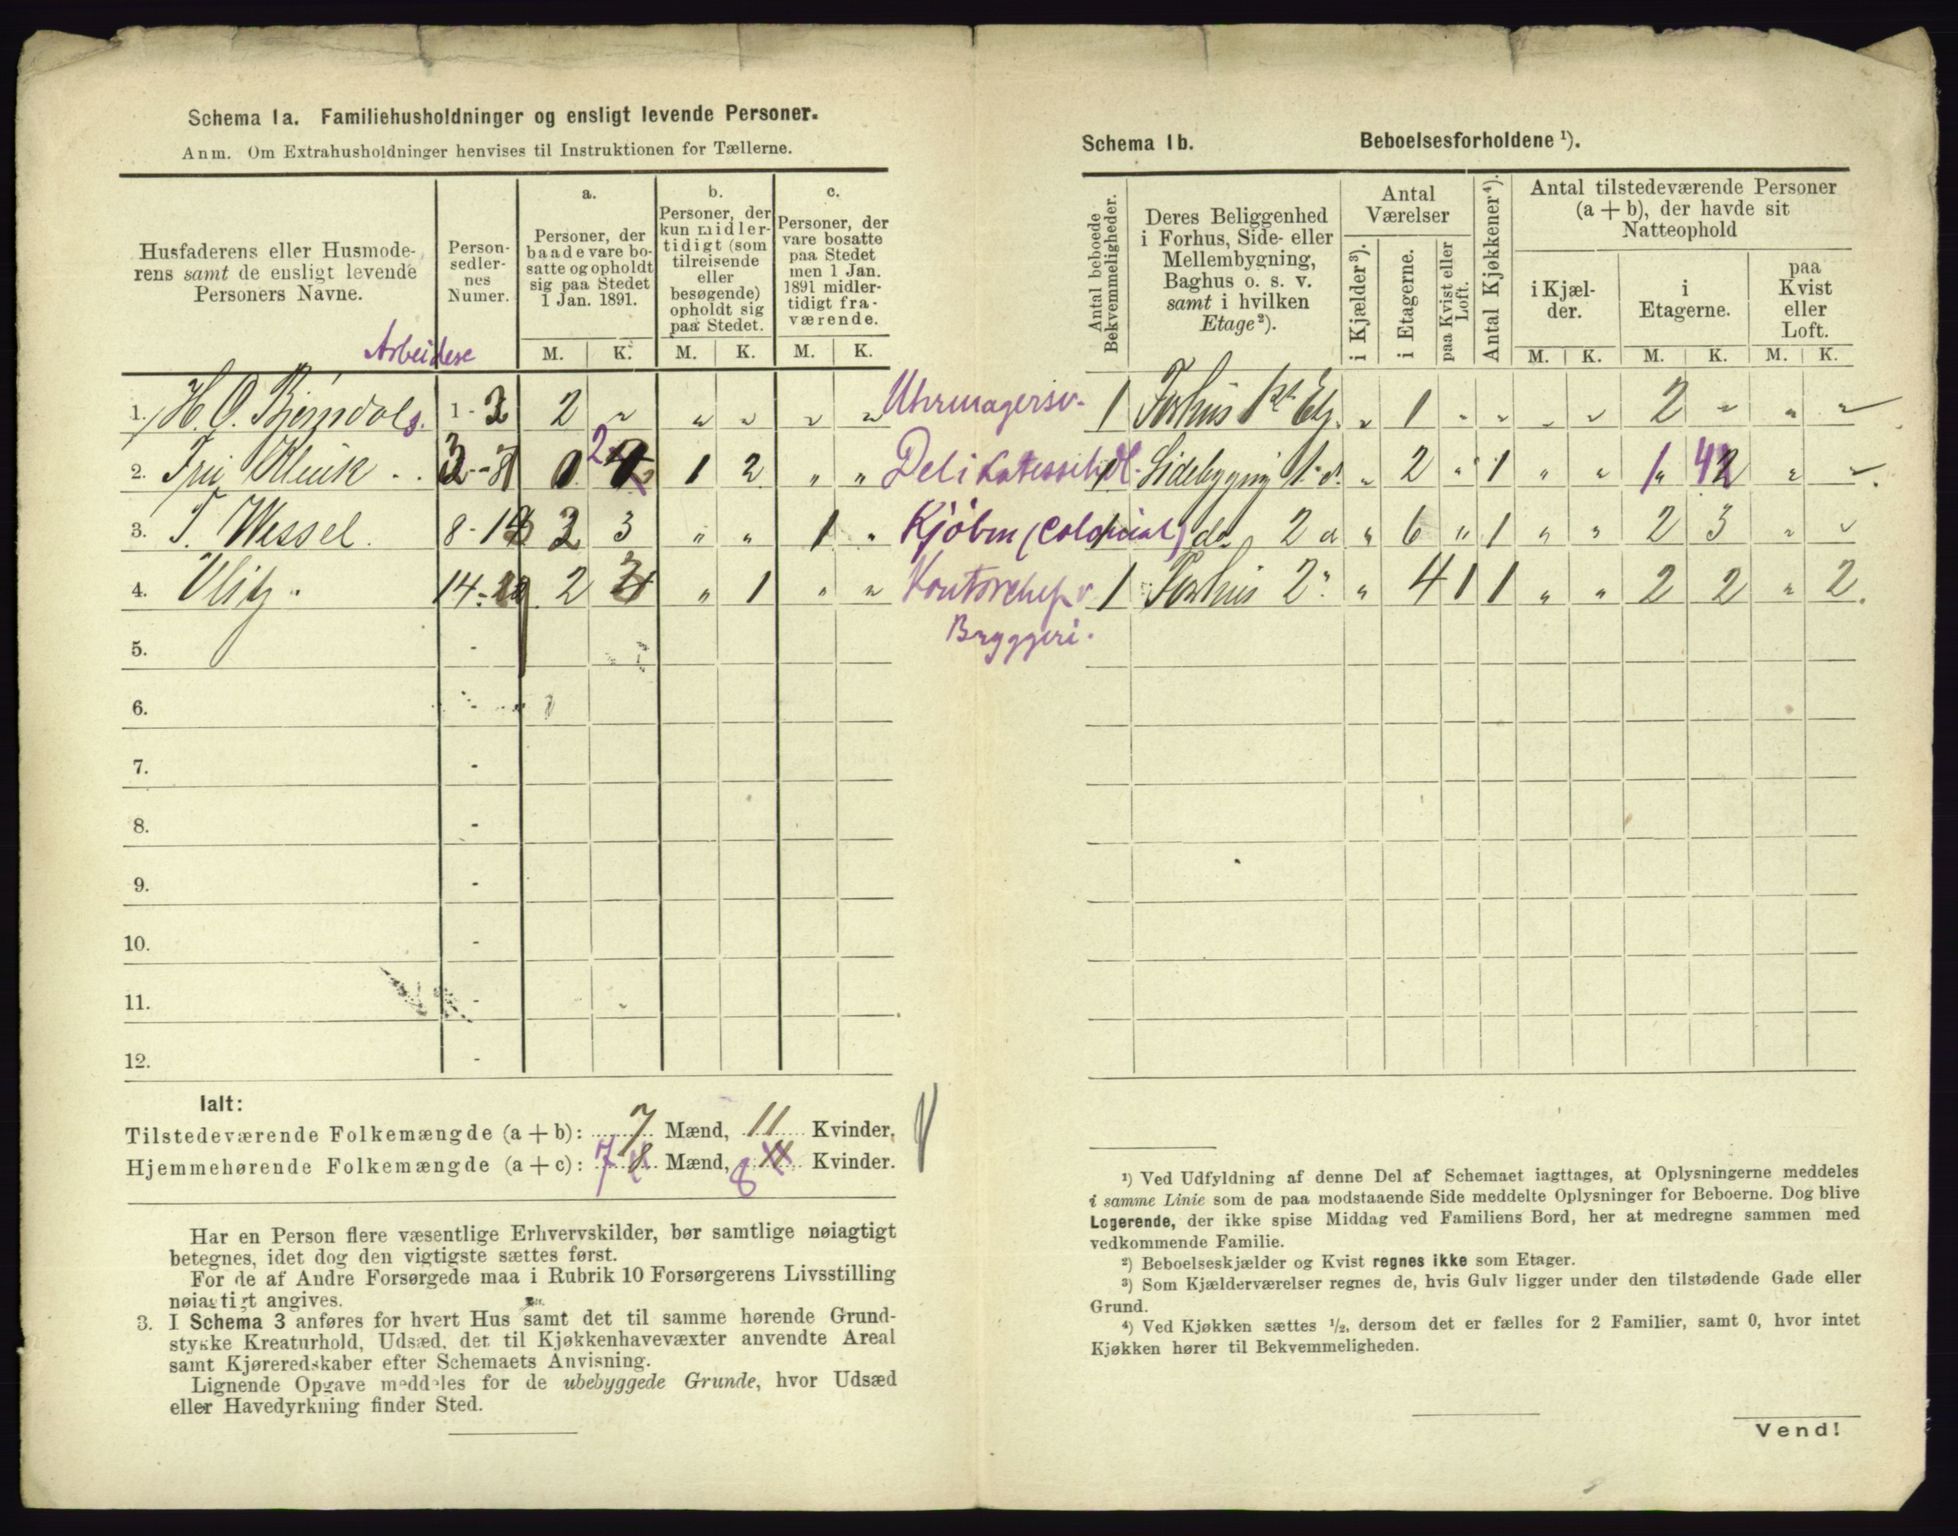 Schema 1a. Familiehusholdninger og ensligt levende Personer.
Anm. Om Extrahusholdninger henvises til Instruktionen for Tællerne.
Husfaderens eller Husmode-
rens samt de ensligt levende
Personers Navne.
Person-
sedler-
nes
Numer.
a.
Personer, der
baade vare bo-
satte og opholdt
sig paa Stedet
1 Jan. 1891.
b.
Personer, der
kun midler-
tidigt (som
tilreisende
eller
besøgende)
opholdt sig
paa Stedet.
c.
Personer, der
vare bosatte
paa Stedet
men 1 Jan.
1891 midler-
tidigt fra-
værende.
M. K. M. K. M. K.
Arbeidere
1. H. O. Bjørndals. 1 - 2 2 " " " " "
2. 3 - 1 2 " "
3. T. Wessel. 8 - 3 " " 1 "
4. 14 - 2 " 1 " "
5. -
6. -
7. -
8. -
9. -
10. -
11. -
12. -
Ialt:
Tilstedeværende Folkemængde (a + b): 7 Mænd, 11 Kvinder.
Hjemmehørende Folkemængde (a + c): 7 8 Mænd, 8 11 Kvinder.
Har en Person flere væsentlige Erhvervskilder, bør samtlige nøiagtigt
betegnes, idet dog den vigtigste sættes først.
For de af Andre Forsørgede maa i Rubrik 10 Forsørgerens Livsstilling
nøiagtigt angives.
3. I Schema 3 anføres for hvert Hus samt det til samme hørende Grund-
stykke Kreaturhold, Udsæd, det til Kjøkkenhavevæxter anvendte Areal
samt Kjøreredskaber efter Schemaets Anvisning.
Lignende Opgave meddeles for de ubebyggede Grunde, hvor Udsæd
eller Havedyrkning finder Sted.
Schema 1b. Beboelsesforholdene ¹).
Antal beboede
Bekvemmeligheder.
Deres Beliggenhed
i Forhus, Side- eller
Mellembygning,
Baghus o. s. v.
samt i hvilken
Etage²).
Antal
Værelser
i Kjælder³).
i Etagerne.
paa Kvist eller
Loft.
Antal Kjøkkener⁴).
Antal tilstedeværende Personer
(a + b), der havde sit
Natteophold
i Kjæl-
der.
i
Etagerne.
paa
Kvist
eller
Loft.
M. K. M. K. M. K.
Uhrmagersv. 1 Forhus 1ste Etg. " 1 " " " " 2 " " "
Delikatessehdl. 1 Sidebygning 1. d. " 2 " 1 " " 1 4 " "
Kjøbm (Colonial) 1 do 2 d " 6 " 1 " " 2 3 " "
Kontorchef v 1 Forhus 2" " 4 1 1 " " 2 2 " 2.
Bryggeri.
¹) Ved Udfyldning af denne Del af Schemaet iagttages, at Oplysningerne meddeles
i samme Linie som de paa modstaaende Side meddelte Oplysninger for Beboerne. Dog blive
Logerende, der ikke spise Middag ved Familiens Bord, her at medregne sammen med
vedkommende Familie.
²) Beboelseskjælder og Kvist regnes ikke som Etager.
³) Som Kjælderværelser regnes de, hvis Gulv ligger under den tilstødende Gade eller
Grund.
⁴) Ved Kjøkken sættes ½, dersom det er fælles for 2 Familier, samt 0, hvor intet
Kjøkken hører til Bekvemmeligheden.
Vend!